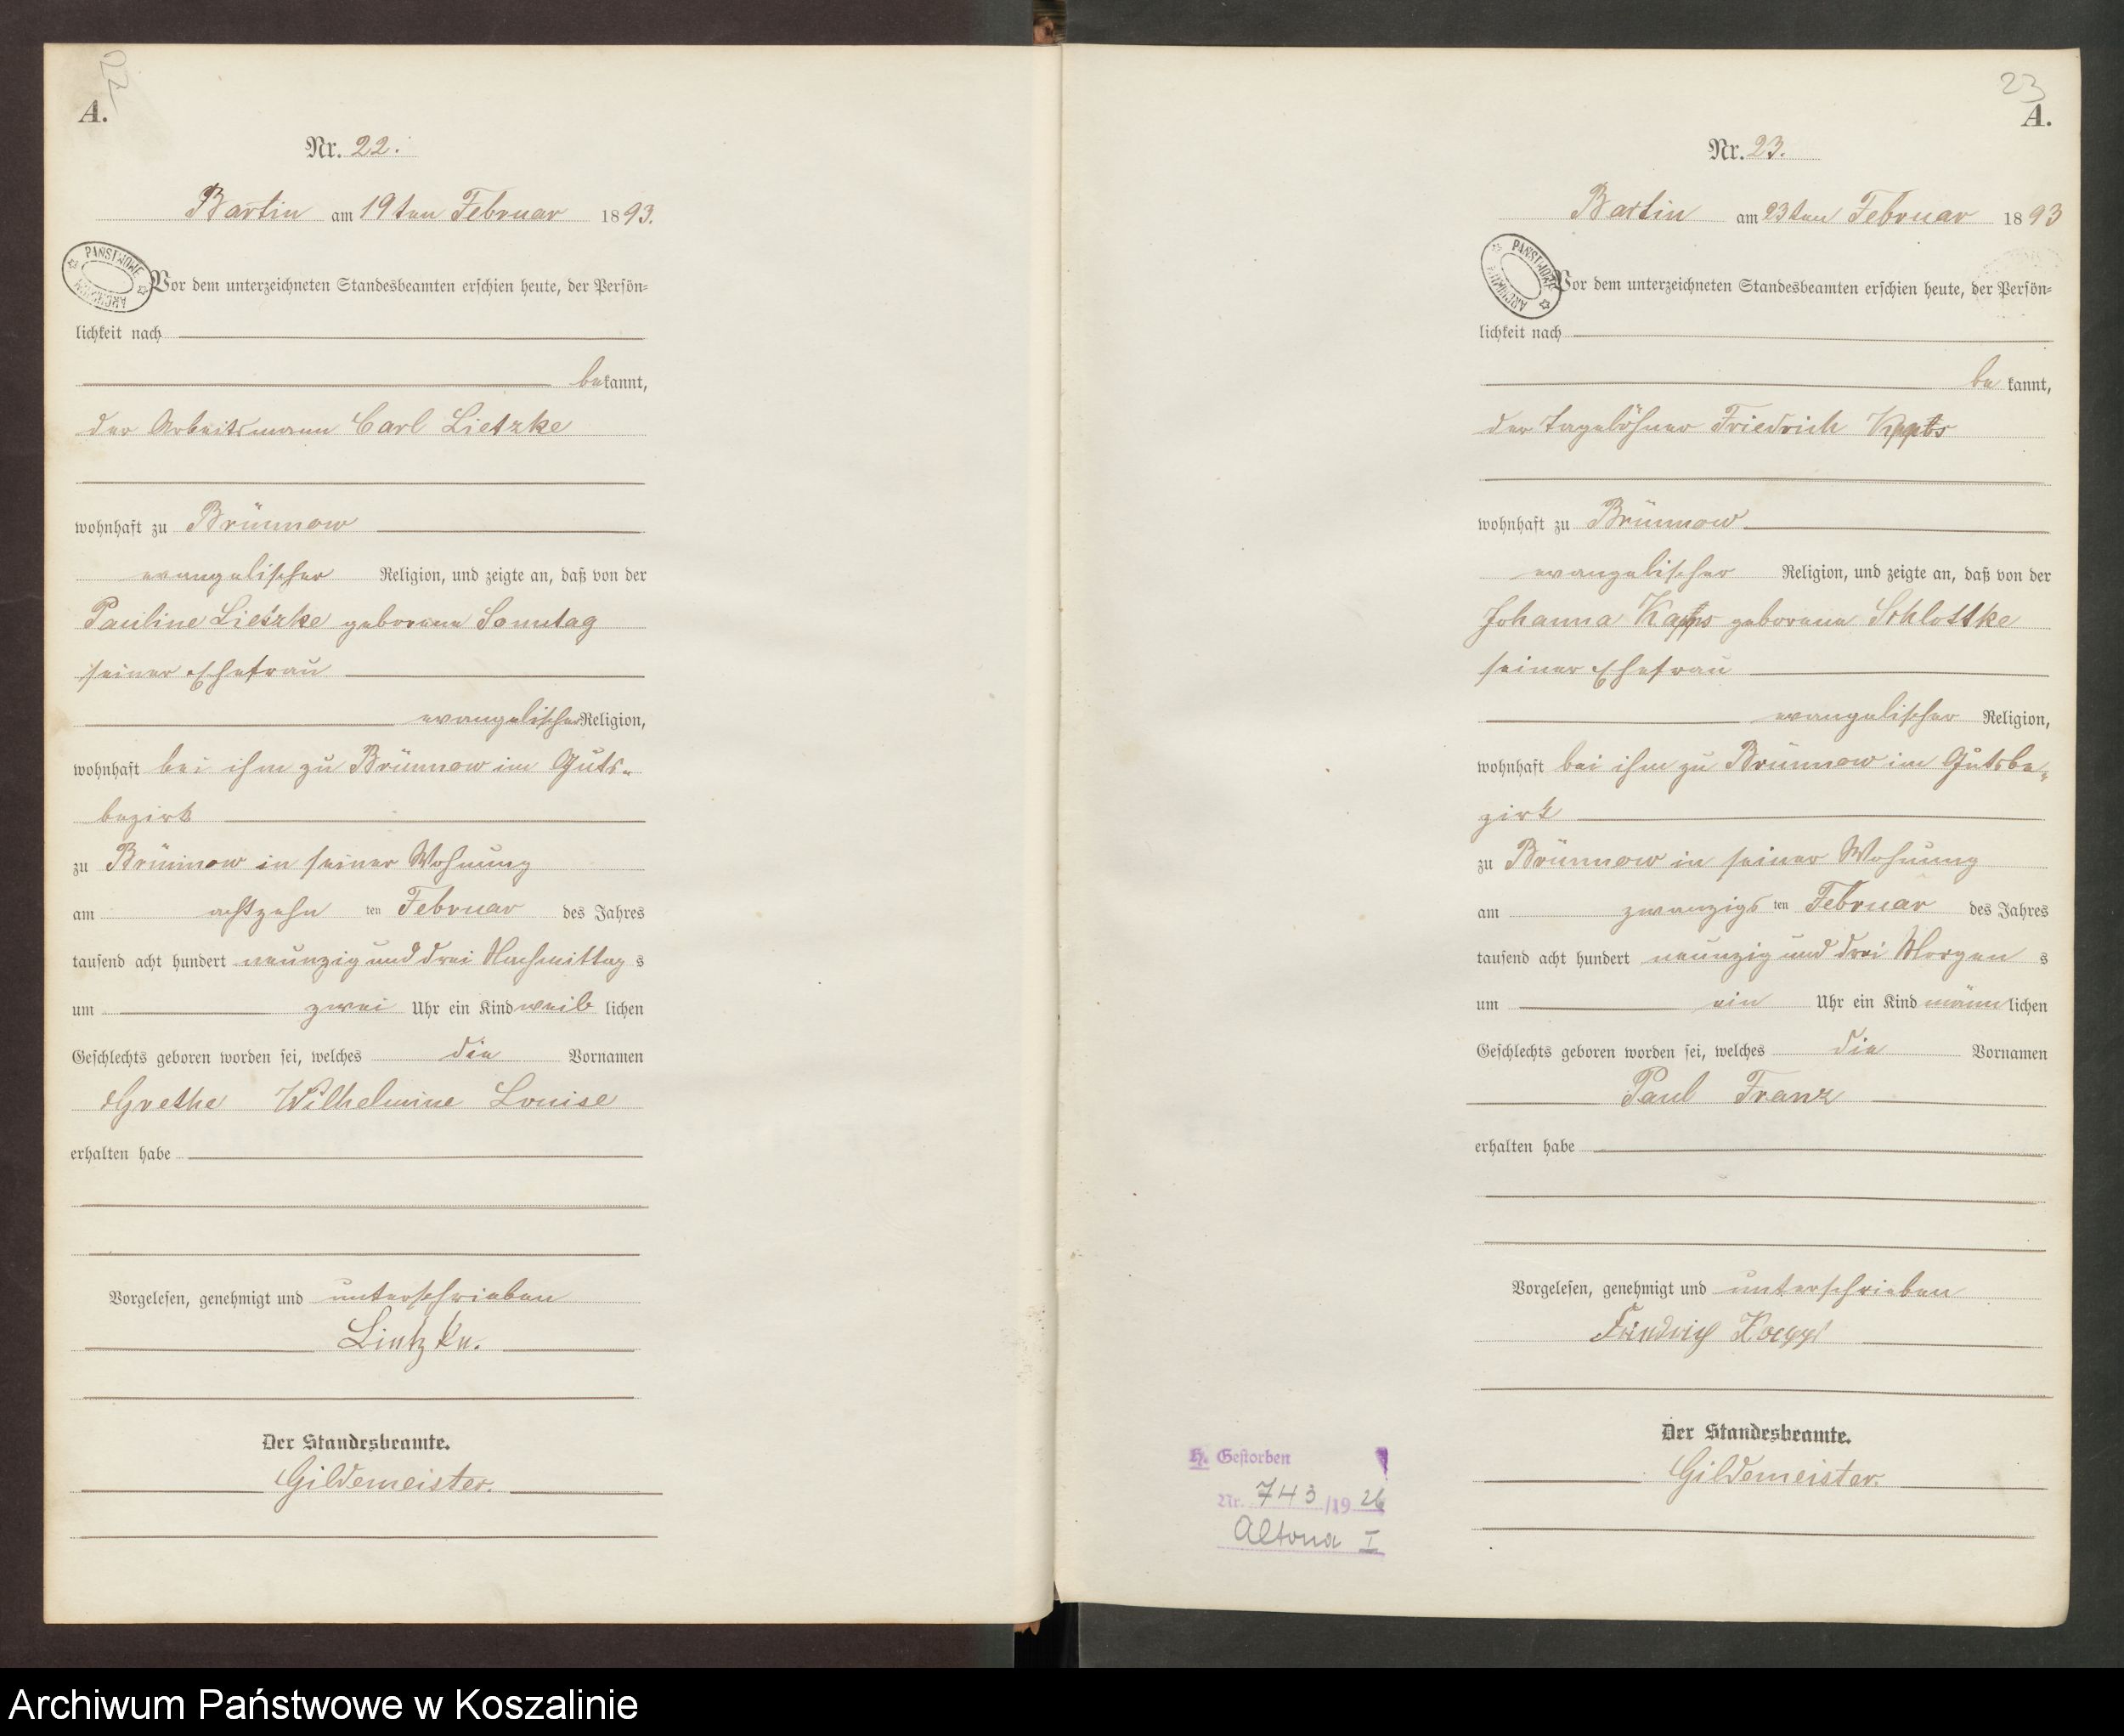 22
A.
Nr. 22.
Bartin am 19ten Februar 1893.
PAŃSTWOWE ARCHIWUM
Vor dem unterzeichneten Standesbeamten erschien heute, der Persön-
lichkeit nach
bekannt,
der Arbeitsmann Carl Lietzke
wohnhaft zu Brünnow
evangelischer Religion, und zeigte an, daß von der
Pauline Lietzke geborene Sonntag
seiner Ehefrau
evangelischer Religion,
wohnhaft bei ihm zu Brünnow im Guts-
bezirk
zu Brünnow in seiner Wohnung
am achtzehn ten Februar des Jahres
tausend acht hundert neunzig und drei Nachmittag s
um zwei Uhr ein Kind weib lichen
Geschlechts geboren worden sei, welches die Vornamen
Grethe Wilhelmine Louise
erhalten habe
Vorgelesen, genehmigt und unterschrieben
Lietzke.
Der Standesbeamte.
Gildemeister.
23
A.
Nr. 23.
Bartin am 23ten Februar 1893
PAŃSTWOWE ARCHIWUM
Vor dem unterzeichneten Standesbeamten erschien heute, der Persön-
lichkeit nach
be kannt,
der Tagelöhner Friedrich
wohnhaft zu Brünnow
evangelischer Religion, und zeigte an, daß von der
Johanna geborene Schlottke
seiner Ehefrau
evangelischer Religion,
wohnhaft bei ihm zu Brünnow im Gutsbe-
zirk
zu Brünnow in seiner Wohnung
am zwanzigs ten Februar des Jahres
tausend acht hundert neunzig und drei Morgen s
um ein Uhr ein Kind männ lichen
Geschlechts geboren worden sei, welches die Vornamen
Paul Franz
erhalten habe
Vorgelesen, genehmigt und unterschrieben
Friedrich
Der Standesbeamte.
Gildemeister.
H. Gestorben
Nr. 743/1926
Altona I
Archiwum Państwowe w Koszalinie